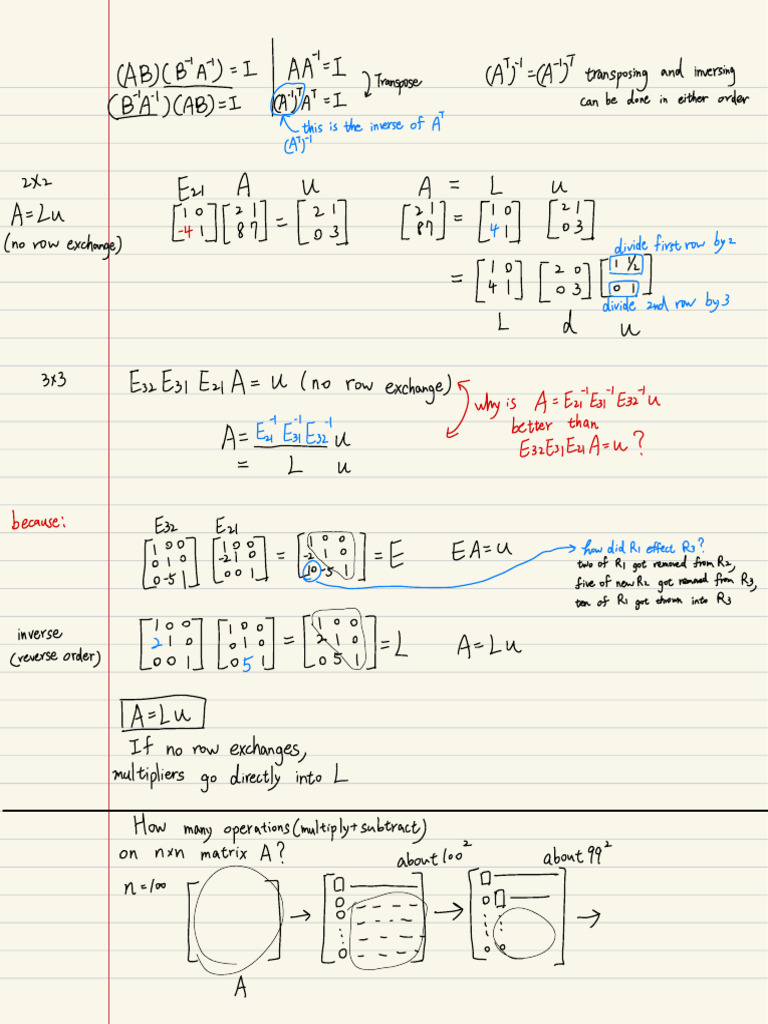 (AB)(B⁻¹A⁻¹) = I
(B⁻¹A⁻¹)(AB) = I
AA⁻¹ = I
(A⁻¹)ᵀAᵀ = I
Transpose
this is the inverse of Aᵀ
(Aᵀ)⁻¹
(Aᵀ)⁻¹ = (A⁻¹)ᵀ transposing and inversing
can be done in either order
2x2
A = Lu
(no row exchange)
E₂₁ A u
[1 0; -4 1] [2 1; 8 7] = [2 1; 0 3]
A = L u
[2 1; 8 7] = [1 0; 4 1] [2 1; 0 3]
divide first row by 2
= [1 0; 4 1] [2 0; 0 3] [1 1/2; 0 1]
divide 2nd row by 3
L d u
3x3
E₃₂ E₃₁ E₂₁ A = u (no row exchange)
A = E₂₁⁻¹ E₃₁⁻¹ E₃₂⁻¹ u
= L u
why is A = E₂₁⁻¹E₃₁⁻¹E₃₂⁻¹u
better than
E₃₂E₃₁E₂₁A = u ?
because:
E₃₂ E₂₁
[1 0 0; 0 1 0; 0 -5 1] [1 0 0; -2 1 0; 0 0 1] = [1 0 0; -2 1 0; 10 -5 1] = E EA = u
how did R1 effect R3?
two of R1 got removed from R2,
five of new R2 got removed from R3,
ten of R1 got thrown into R3
inverse
(reverse order)
[1 0 0; 2 1 0; 0 0 1] [1 0 0; 0 1 0; 0 5 1] = [1 0 0; 2 1 0; 0 5 1] = L A = Lu
A = Lu
If no row exchanges,
multipliers go directly into L
How many operations (multiply + subtract)
on nxn matrix A?
about 100²
about 99²
n = 100
A